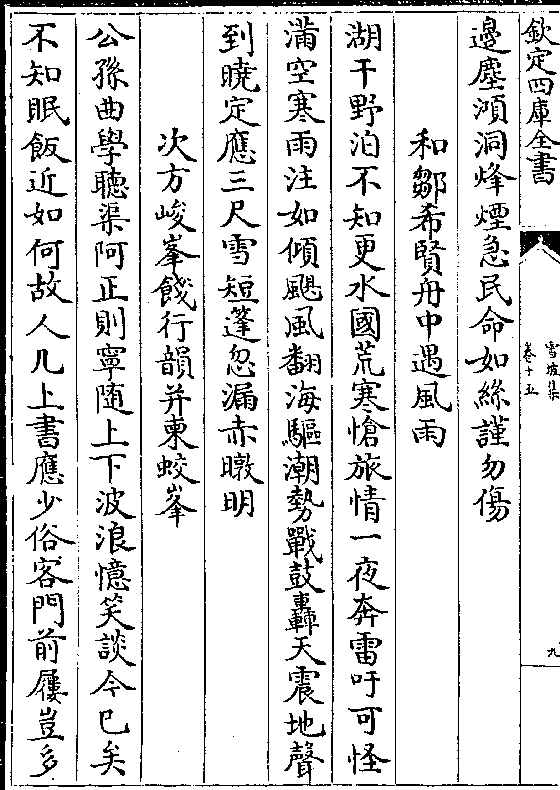 欽定四庫全書
雪坡集
卷十五
九
邊塵澒洞烽煙急民命如絲謹勿傷
和鄒希賢舟中遇風雨
湖干野泊不知更水國荒寒愴旅情一夜奔雷吁可怪
滿空寒雨注如傾颶風翻海驅潮勢戰鼓轟天震地聲
到曉定應三尺雪短蓬忽漏赤暾明
次方峻峯餞行韻并柬蛟峯
公孫曲學聽渠阿正則寧随上下波浪憶笑談今已矣
不知眠飯近如何故人几上書應少俗客門前屨豈多